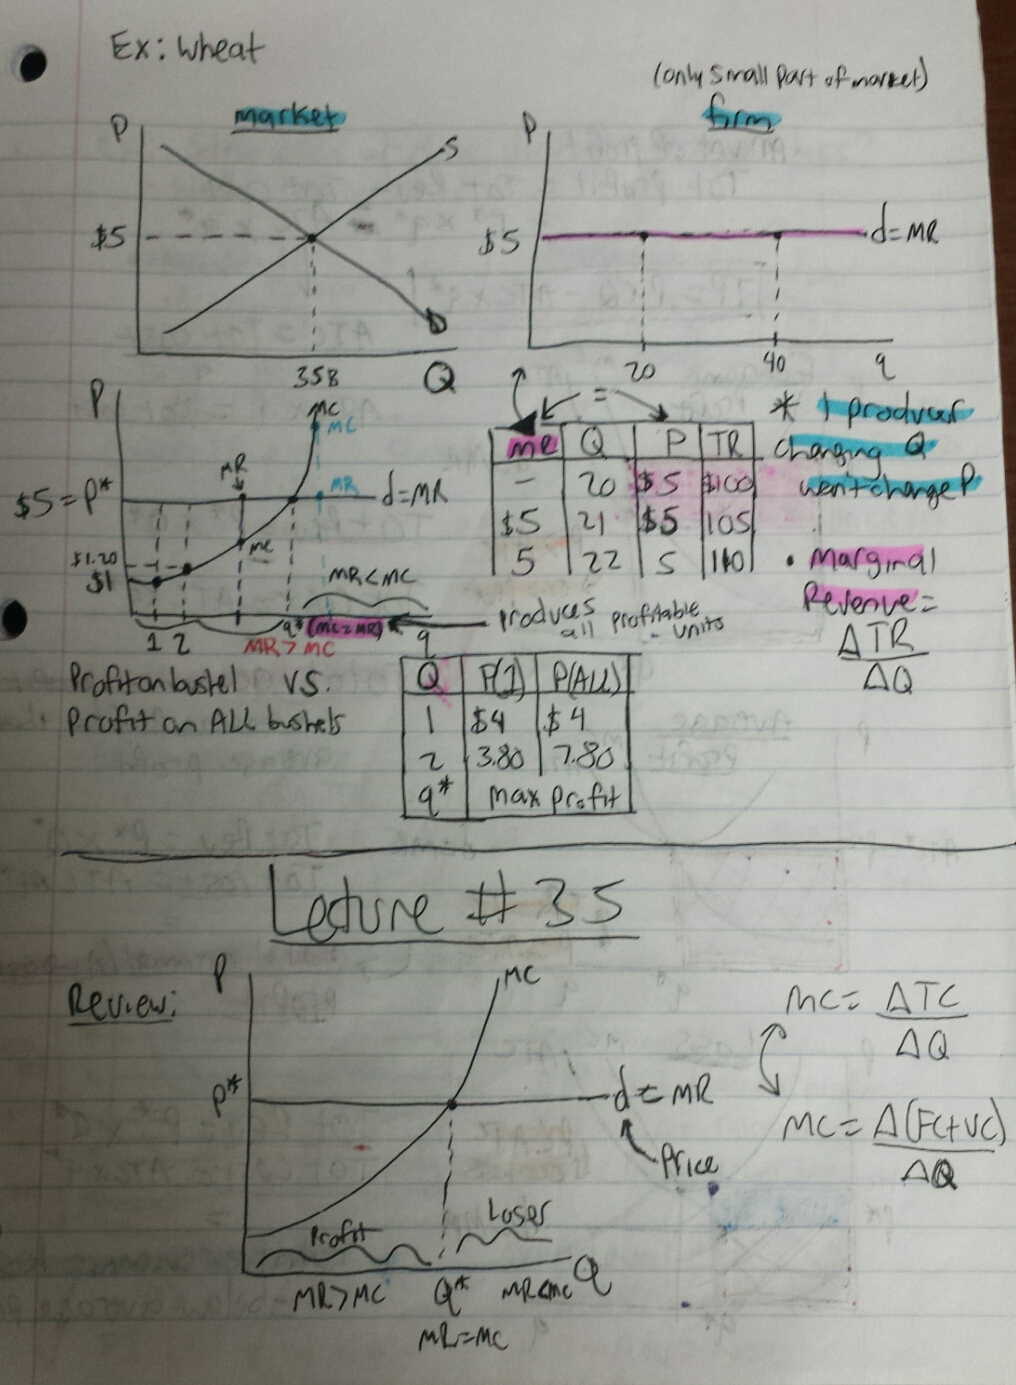 Ex: Wheat
(only small part of market)
market
firm
P
S
$5
D
35B
Q
P
$5
d=MR
20
40
q
P
MC
MC
MR
MR
d=MR
$5=P*
MC
$1.20
$1
MR<MC
1 2
q* (MC=MR)
q
MR>MC
produces
all profitable
units
=
MR Q P TR
- 20 $5 $100
$5 21 $5 105
5 22 5 110
* 1 producer
changing Q
won't change P
• Marginal
Revenue=
ΔTR
ΔQ
Profit on bushel vs.
• Profit on ALL bushels
Q P(1) P(ALL)
1 $4 $4
2 3.80 7.80
q* max profit
Lecture #35
Review:
P
MC
P*
d=MR
Price
Profit
Loser
MR>MC
Q*
MR<MC
Q
MR=MC
MC= ΔTC
ΔQ
MC= Δ(FC+VC)
ΔQ